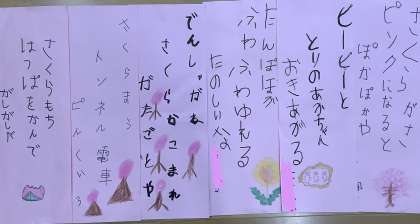 さくらがさ
ピンクになると
ぽかぽかや
ピーピーと
とりのあかちゃん
おきあがる
たんぽぽが
ふわふわゆれる
たのしいな
でんしゃがね
さくらかこまれ
ガタゴトや
さくらまう
トンネル電車
ぴんくいろ
さくらもち
はっぱをかんで
がしがしだ